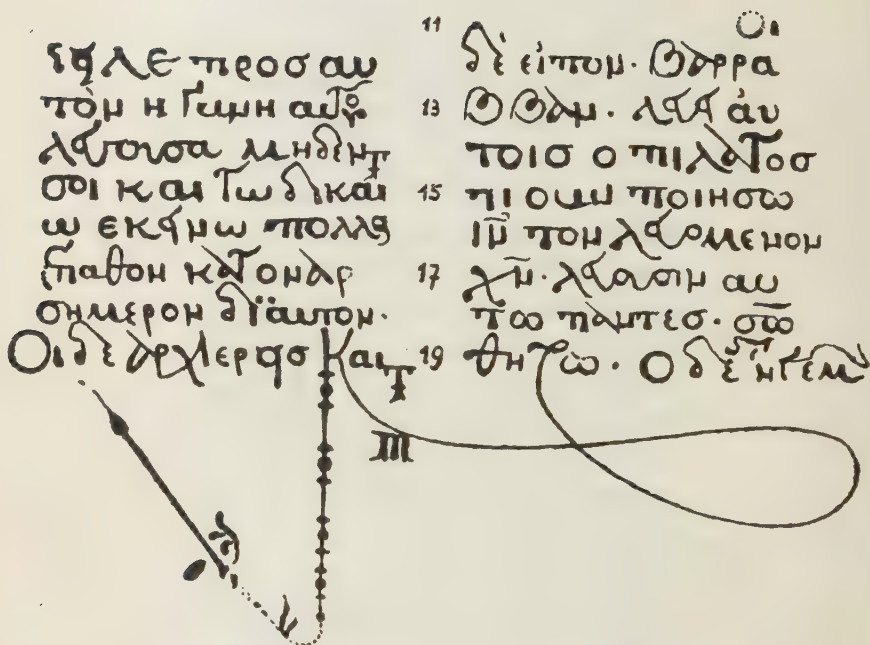 ϛειλε προσ αυ
τὸν η γυνη αυτου
λέγουσα μηδεν τ
σοι και τω δικαι
ω εκεινω πολλα
ἔπαθον κατοναρ
σημερον δϊαυτον·
Οι δε αρχιερεισ και τ
11
13
15
17
19
Οι
δὲ εἰπον· βαρρα
ββαν· λέγει αυ
τοισ ο πιλατοσ
τι ουν ποιησω
ιν̅ τον λεγομενον
χν̅· λέγουσιν αυ
τω παντεσ· σρ̅ω
θητω· Ο δὲ ηγεμ